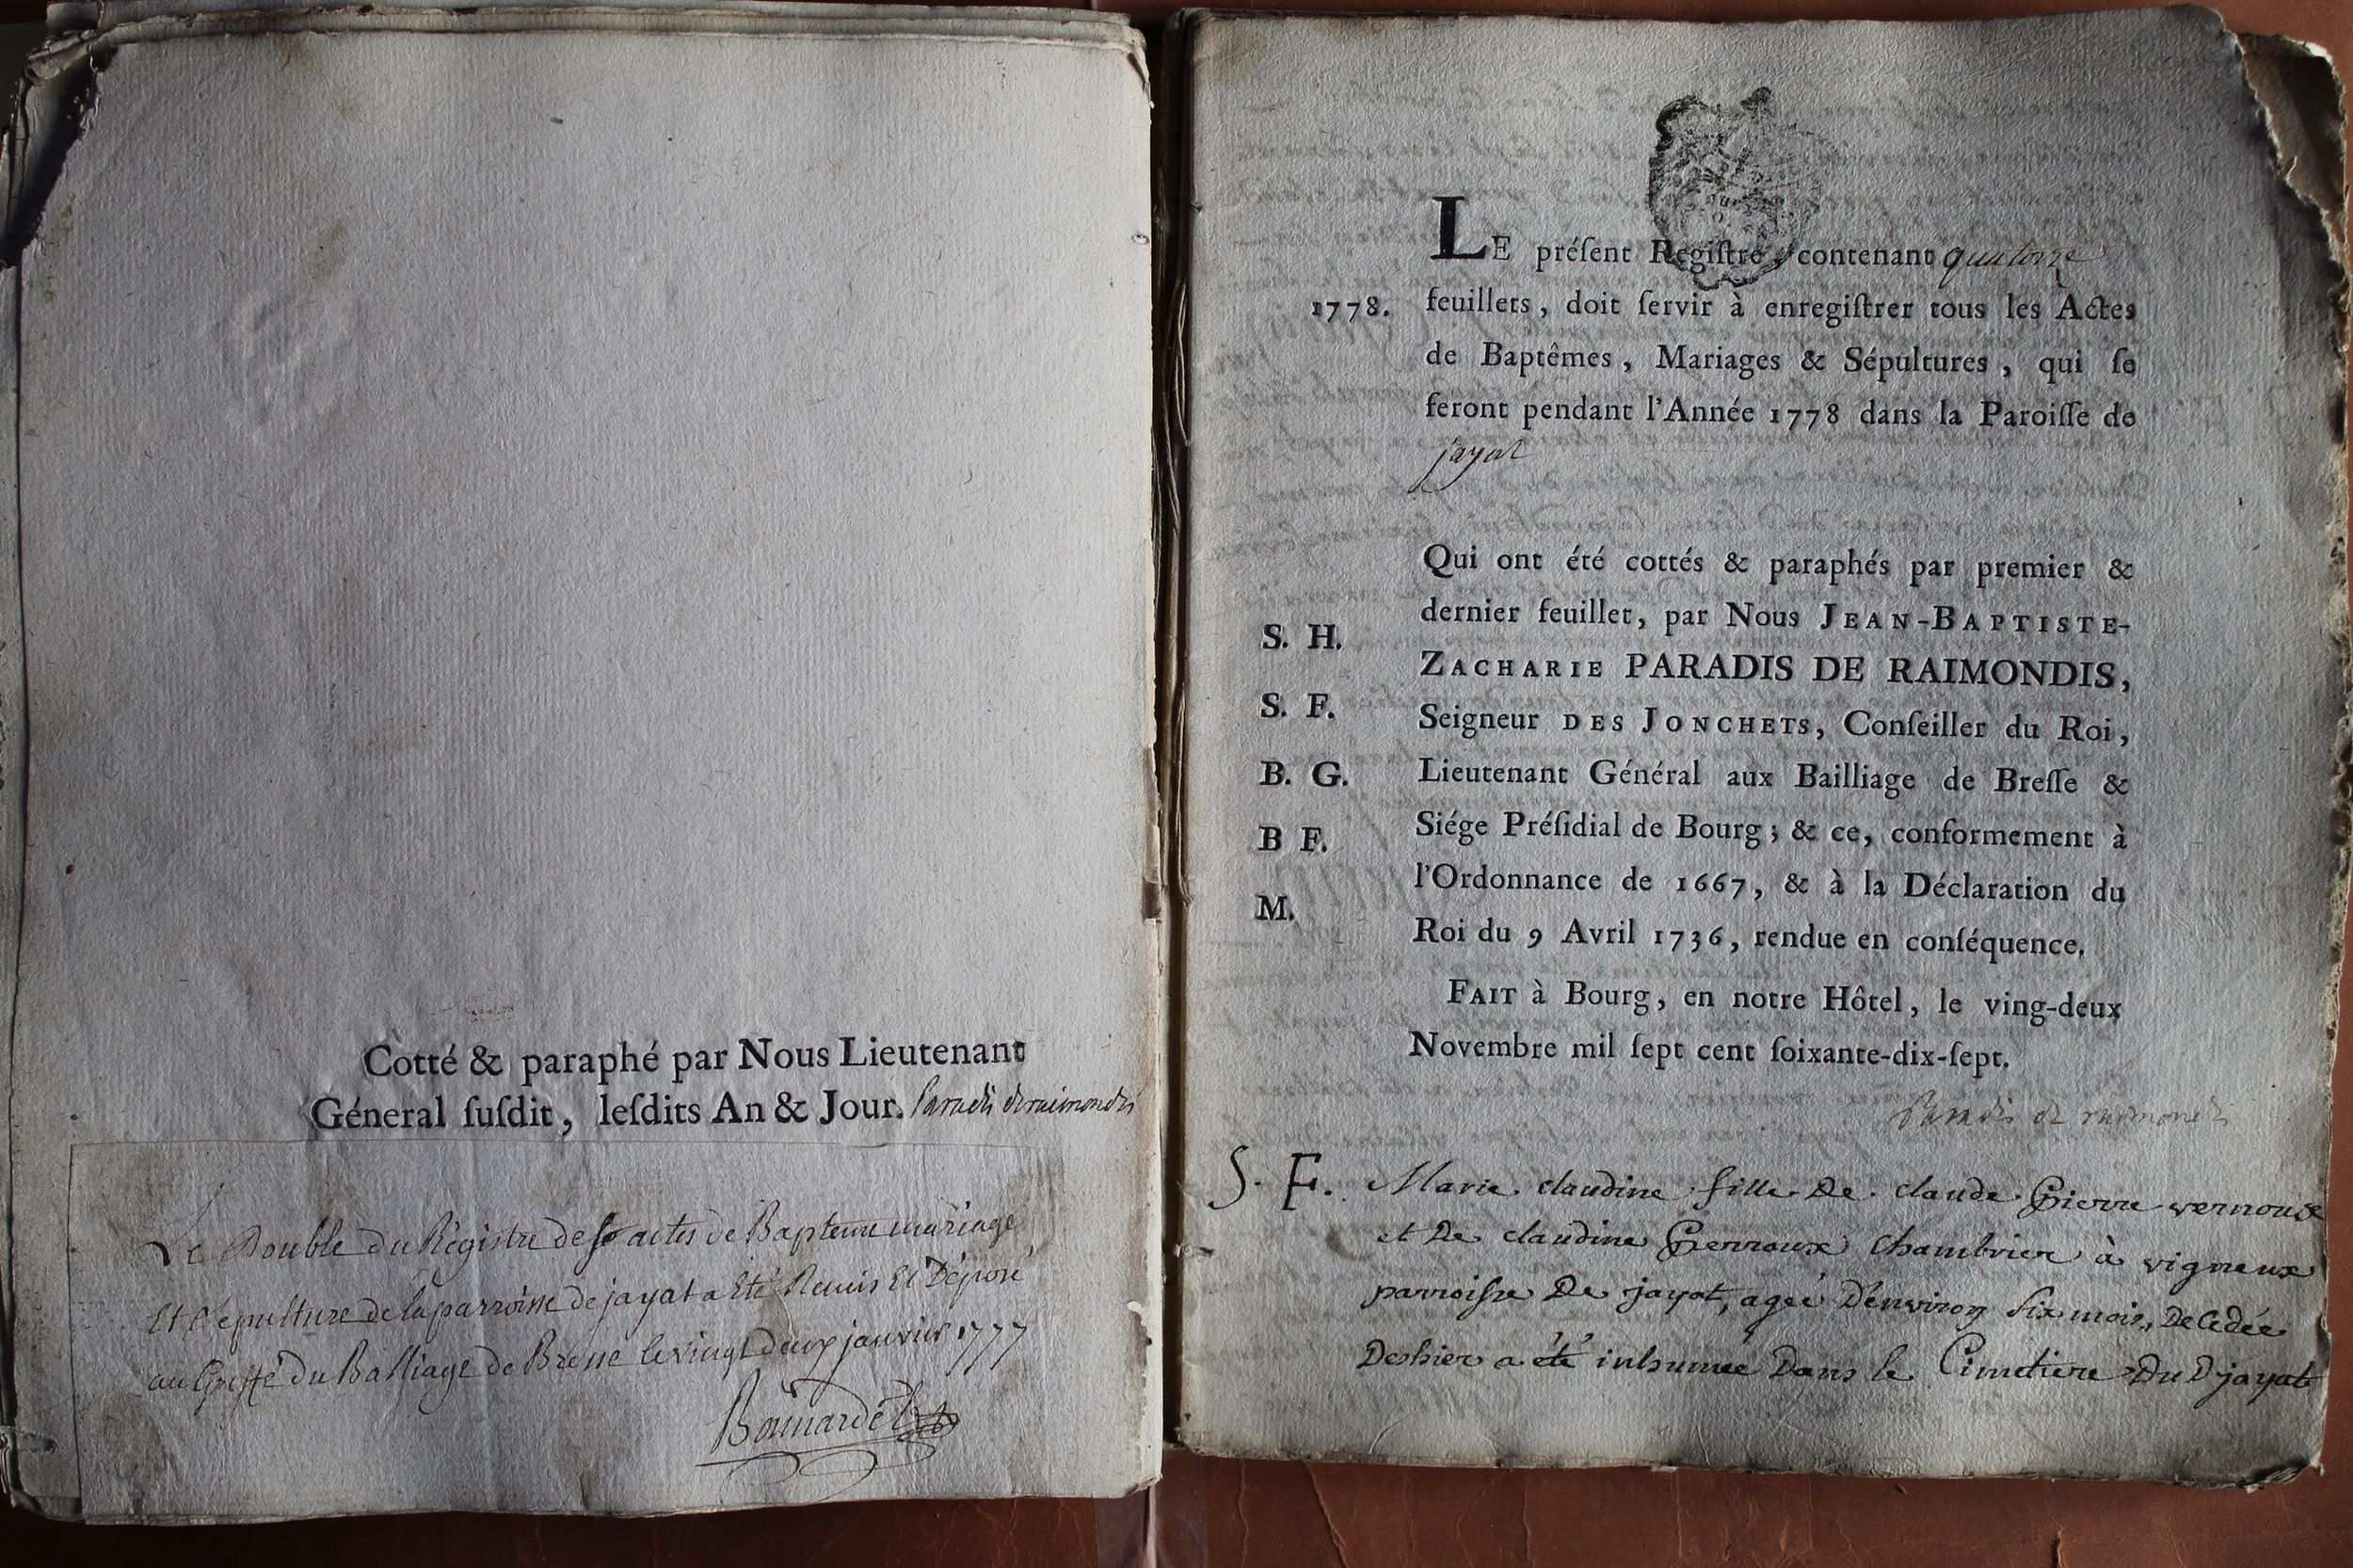 Cotté & paraphé par Nous Lieutenant
Géneral ſuſdit, leſdits An & Jour. Paradis deraimondis
Le Double du Régistre des actes de Baptemme mariage
Et Sépulture de la parroisse de jayat a Eté Remis Et Déposé
au Greffé du Balliage de Bresse le vingt Deux janvier 1777
Bonnardel
LE préſent Regiſtre, contenant quatorze
1778. feuillets, doit ſervir à enregiſtrer tous les Actes
de Baptêmes, Mariages & Sépultures, qui ſe
feront pendant l'Année 1778 dans la Paroiſſe de
jayat
Qui ont été cottés & paraphés par premier &
dernier feuillet, par Nous JEAN-BAPTISTE-
S. H.
ZACHARIE PARADIS DE RAIMONDIS,
S. F.
Seigneur DES JONCHETS, Conſeiller du Roi,
B. G.
Lieutenant Général aux Bailliage de Breſſe &
B F.
Siége Préſidial de Bourg; & ce, conformement à
l'Ordonnance de 1667, & à la Déclaration du
M.
Roi du 9 Avril 1736, rendue en conſéquence.
FAIT à Bourg, en notre Hôtel, le ving-deux
Novembre mil ſept cent ſoixante-dix-ſept.
Paradis de raimondis
S. F. Marie claudine fille De claude Pierre vernoux
et De claudine Perroux chambrier à vigneux
parroisse De jayat, agée D'environ six mois, Decedée
Deshier a été inhumée Dans le Cimetiere Du D jayat